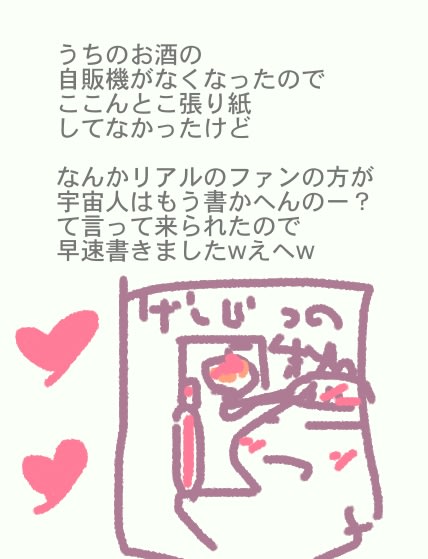 うちのお酒の
自販機がなくなったので
ここんとこ張り紙
してなかったけど
なんかリアルのファンの方が
宇宙人はもう書かへんのー？
て言って来られたので
早速書きましたwえへw
げいじつの